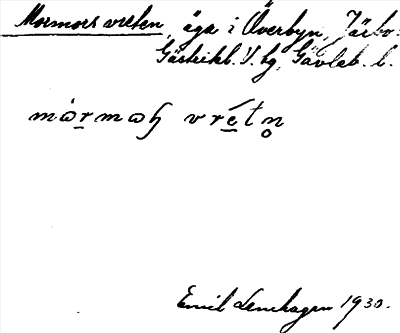 Mormorsvreten, äga i Överbyn, Järbo.
Gästrikl. V. tg, Gävleb. l.
vrétn̥
Emil Lenhagen 1930.